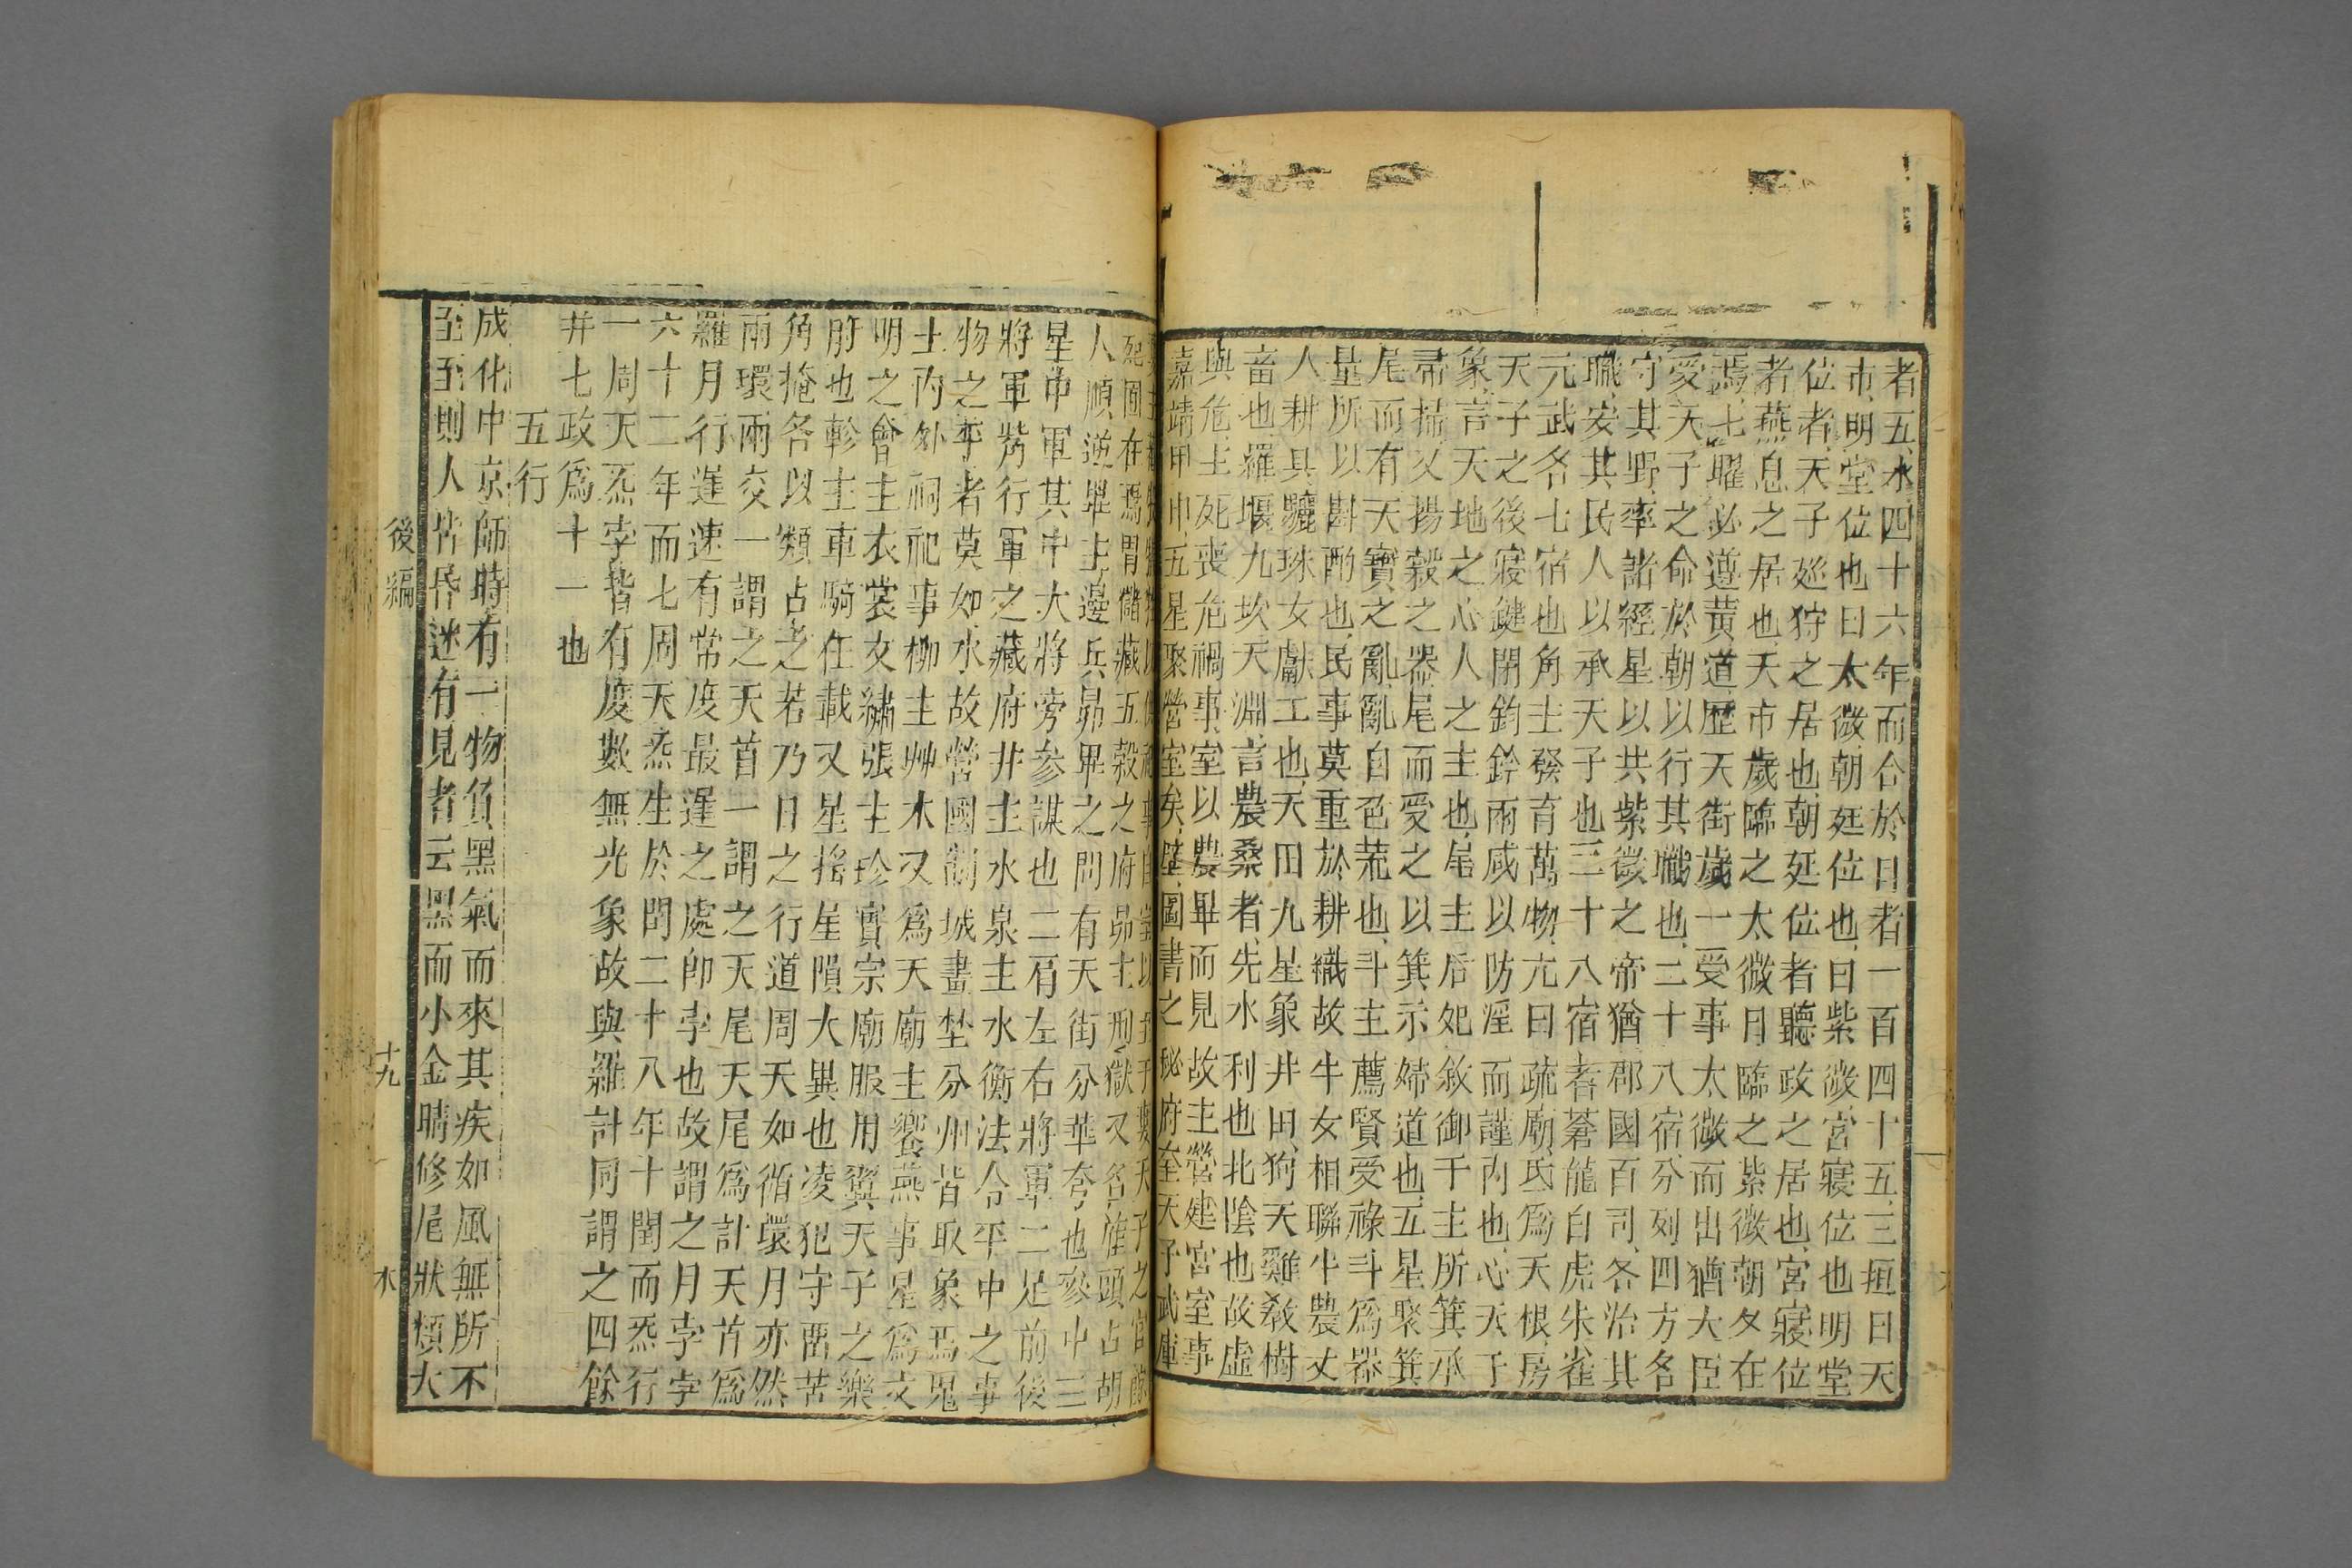 者五水四十六年而合於日者一百四十五三垣曰天
市明堂位也曰太微朝廷位也曰紫微宮寢位也明堂
位者天子廵狩之居也朝廷位者聽政之居也宮寢位
者燕息之居也天市歲臨之太微月臨之紫微朝夕在
焉七曜必遵黄道歴天街歲一受事太微而出猶大臣
受天子之命於朝以行其職也二十八宿分列四方各
守其野率諸經星以共紫微之帝猶郡國百司各治其
職安其民人以承天子也二十八宿者蒼龍白虎朱雀
元武各七宿也角主發育萬物亢曰疏廟氐為天根房
天子之後寢鍵閉鈎鈐兩咸以防淫而謹内也心天子
象言天地之心人之主也尾主后妃敘御于主所箕承
帚掃又揚穀之器尾而受之以箕示婦道也五星聚箕
尾而有天寶之亂亂自色荒也斗主薦賢受祿斗為器
量所以斟酌也民事莫重於耕織故牛女相聯牛農丈
人耕具驪珠女獻工也天田九星象井田狗天雞敎樹
畜也羅堰九坎天淵言農桑者先水利也北陰也故虛
與危主死喪危禍事室以農畢而見故主營建宮室事
嘉靖甲申五星聚營室矣壁圖書之秘府奎天子武庫
人順逆畢主邊兵昴畢之間有天街分華夸也參中三
星中軍其中大將旁參謀也二肩左右將軍二足前後
將軍觜行軍之藏府井主水泉主水衡法令平中之事
物之平者莫如水故營國制城畫埜分州皆取象焉鬼
主內外祠祀事柳主艸木又為天廟主饗燕事星為文
明之會主衣裳文繡張主珍寶宗廟服用翼天子之樂
府也軫主車騎任載又星搖星隕大異也凌犯守留苦
角掩各以類占之若乃日之行道周天如循環月亦然
兩環兩交一謂之天首一謂之天尾天尾為計天首為
羅月行遲速有常度最遲之處卽孛也故謂之月孛孛
六十二年而七周天炁生於閏二十八年十閏而炁行
一周天炁孛皆有度數無光象故與羅計同謂之四餘
并七政為十一也
五行
成化中京師時有一物負黑氣而來其疾如風無所不
至至則人皆昏迷有見者云黑而小金睛修尾狀類犬
後編
十九